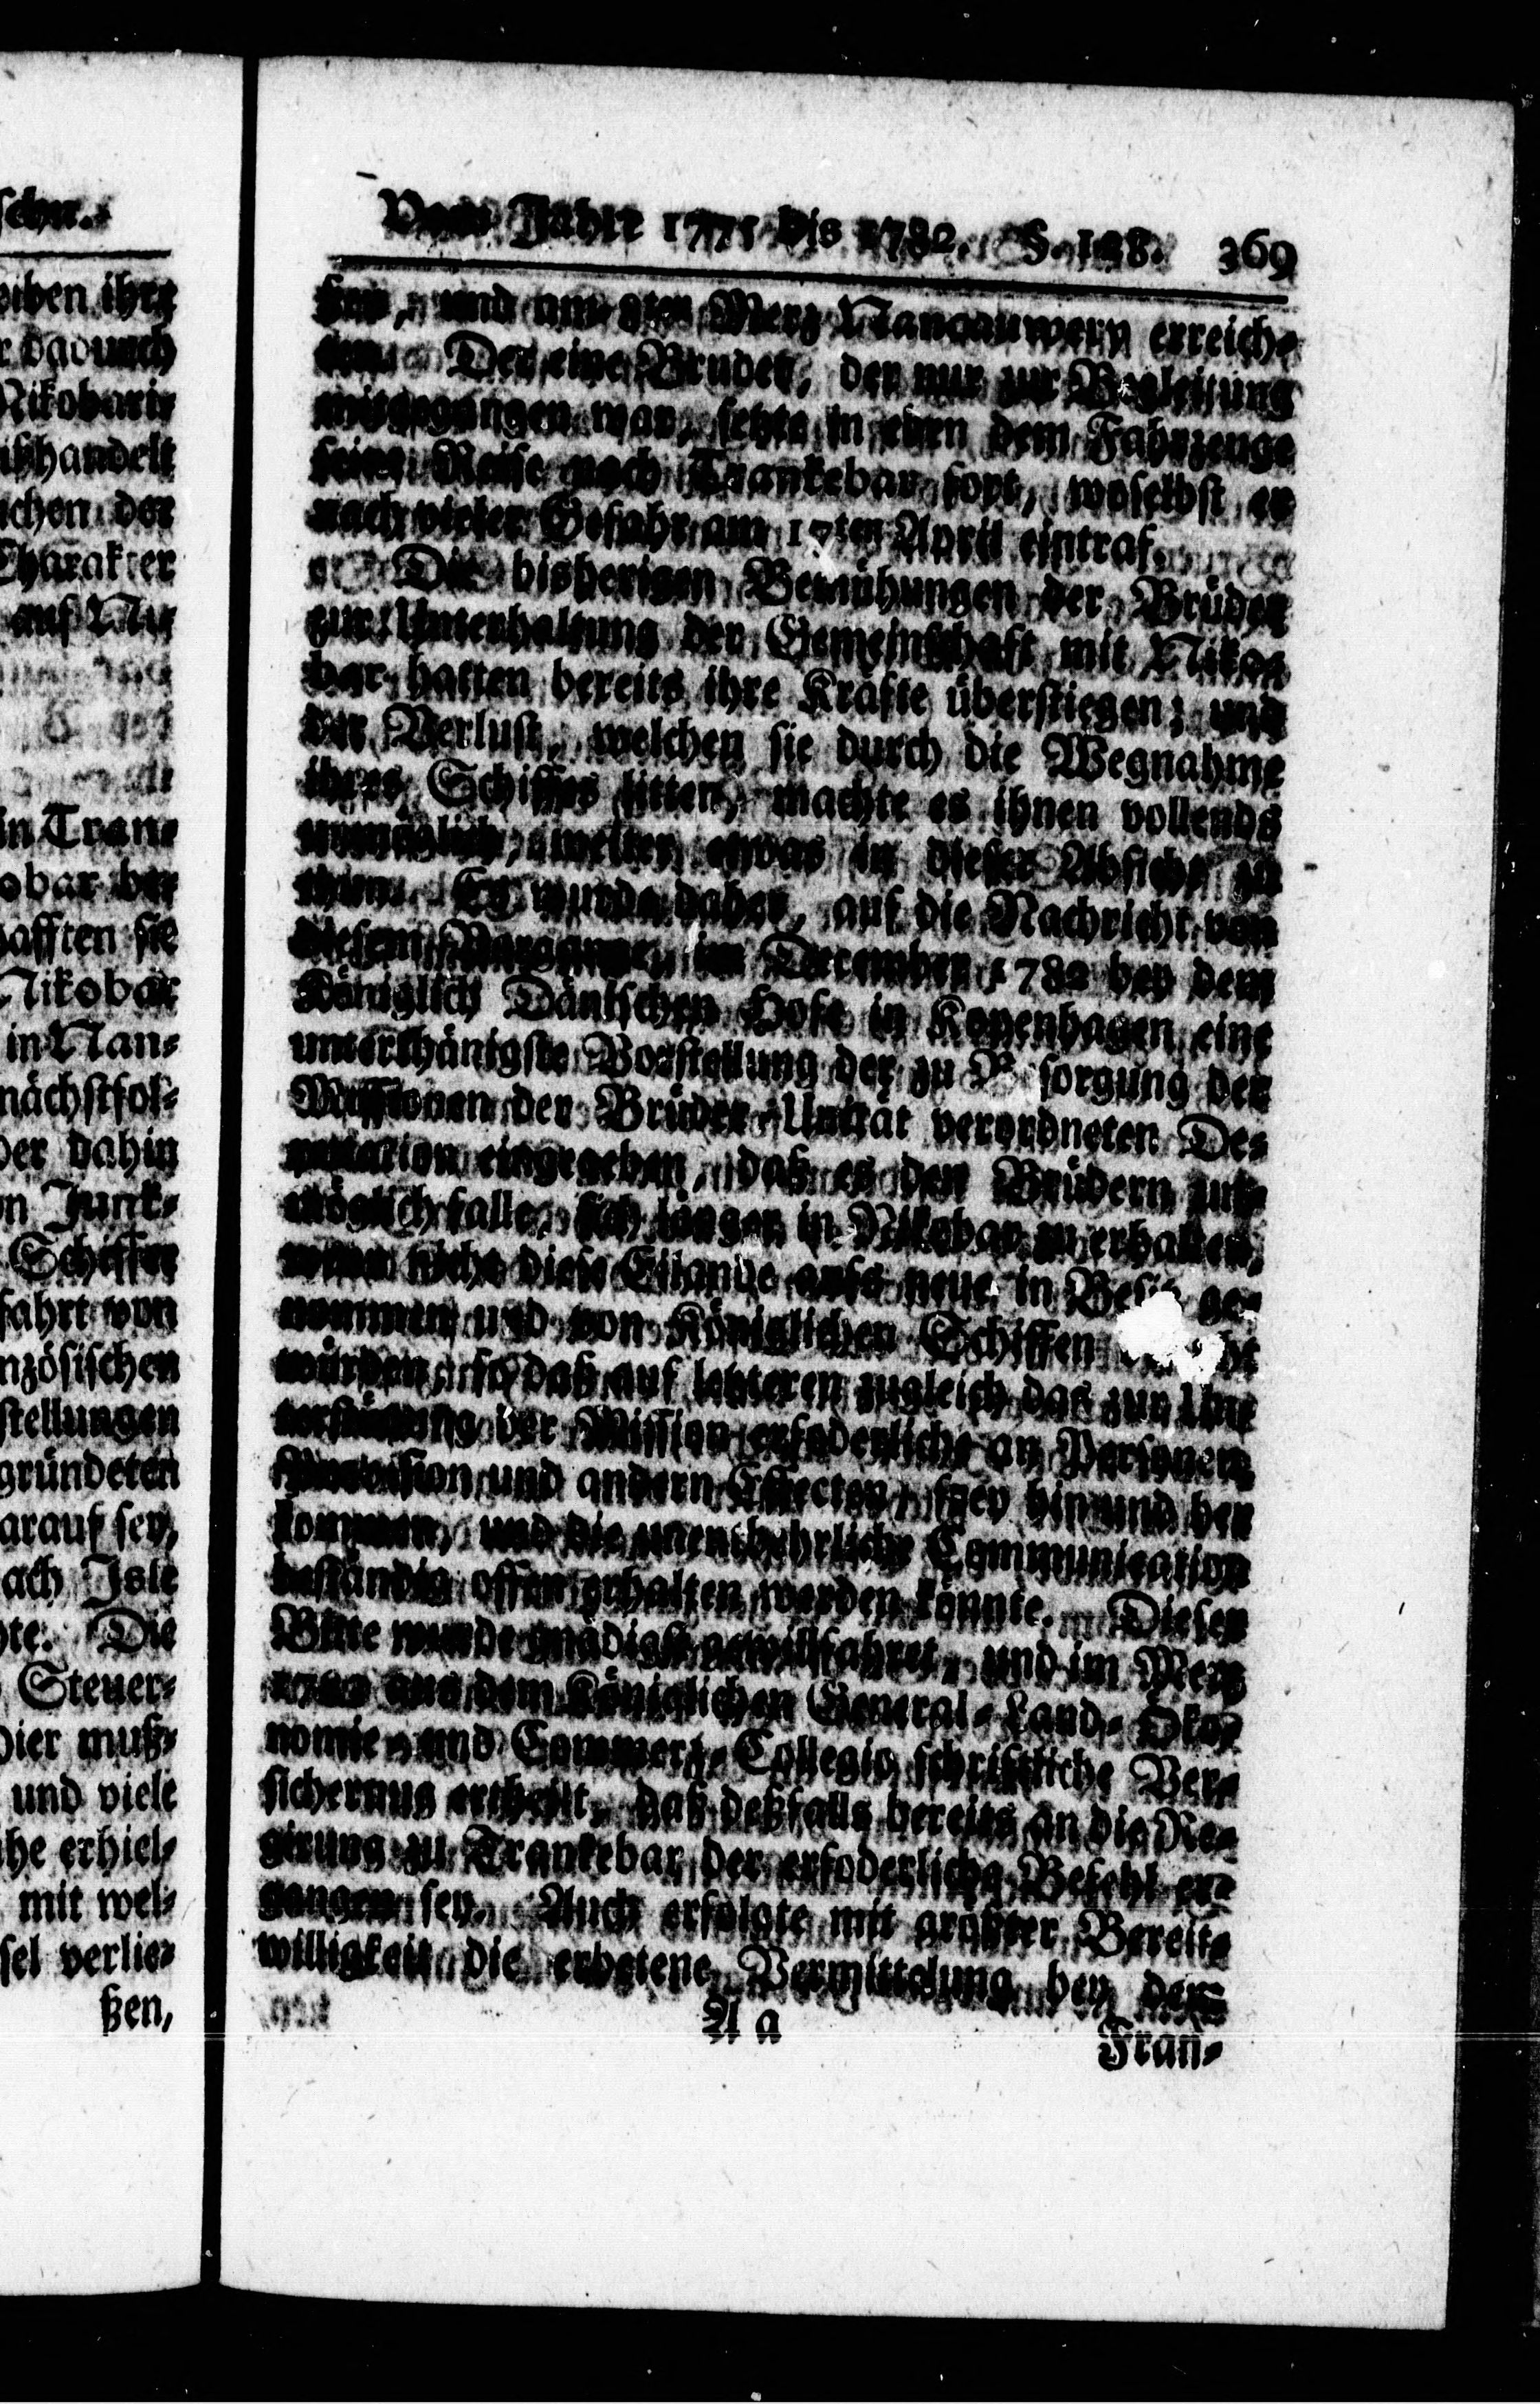 Vom Jahre 1771 bis 1782. §. 128. 369
ßen, und am 8ten Merz Nancauwery erreich⸗
ten. Der eine Bruder, der nur zur Begleitung
mitgegangen war, setzte in eben dem Fahrzeuge
seine Reise nach Trankebar fort, woselbst er
nach vieler Gefahr am 17ten April eintraf.
Die bisherigen Bemühungen der Brüder
zur Unterhaltung der Gemeinschaft mit Niko⸗
bar hatten bereits ihre Kräfte überstiegen; und
der Verlust, welchen sie durch die Wegnahme
ihres Schiffes litten, machte es ihnen vollends
unmöglich, weiter etwas in dieser Absicht zu
thun. Es wurde daher, auf die Nachricht von
diesem Vorgange, im December 1782 bey dem
Königlich Dänischen Hofe in Kopenhagen eine
unterthänigste Vorstellung der zu Besorgung der
Missionen der Brüder⸗Unität verordneten De⸗
putation eingegeben, daß es den Brüdern un⸗
möglich falle, sich länger in Nikobar zu erhalten,
wenn nicht diese Eilande aufs neue in Besitz ge⸗
nommen und von Königlichen Schiffen
würden, so daß auf letzteren zugleich das zur Un⸗
terstützung der Mission erfoderliche an Personen,
Provision und andern Effecten, frey hin und her
kommen, und die unentbehrliche Communication
beständig offen erhalten werden könnte. Dieser
Bitte wurde gnädigst gewillfahret, und im Merz
1783 aus dem Königlichen General⸗Land⸗Öko⸗
nomie⸗ und Commerz⸗Collegio schriftliche Ver⸗
sicherung ertheilt, daß deßfalls bereits an die Re⸗
girung zu Trankebar der erfoderliche Befehl er⸗
gangen sey. Auch erfolgte mit größter Bereit⸗
willigkeit die erbetene Vermittelung bey dem
A a
Fran⸗